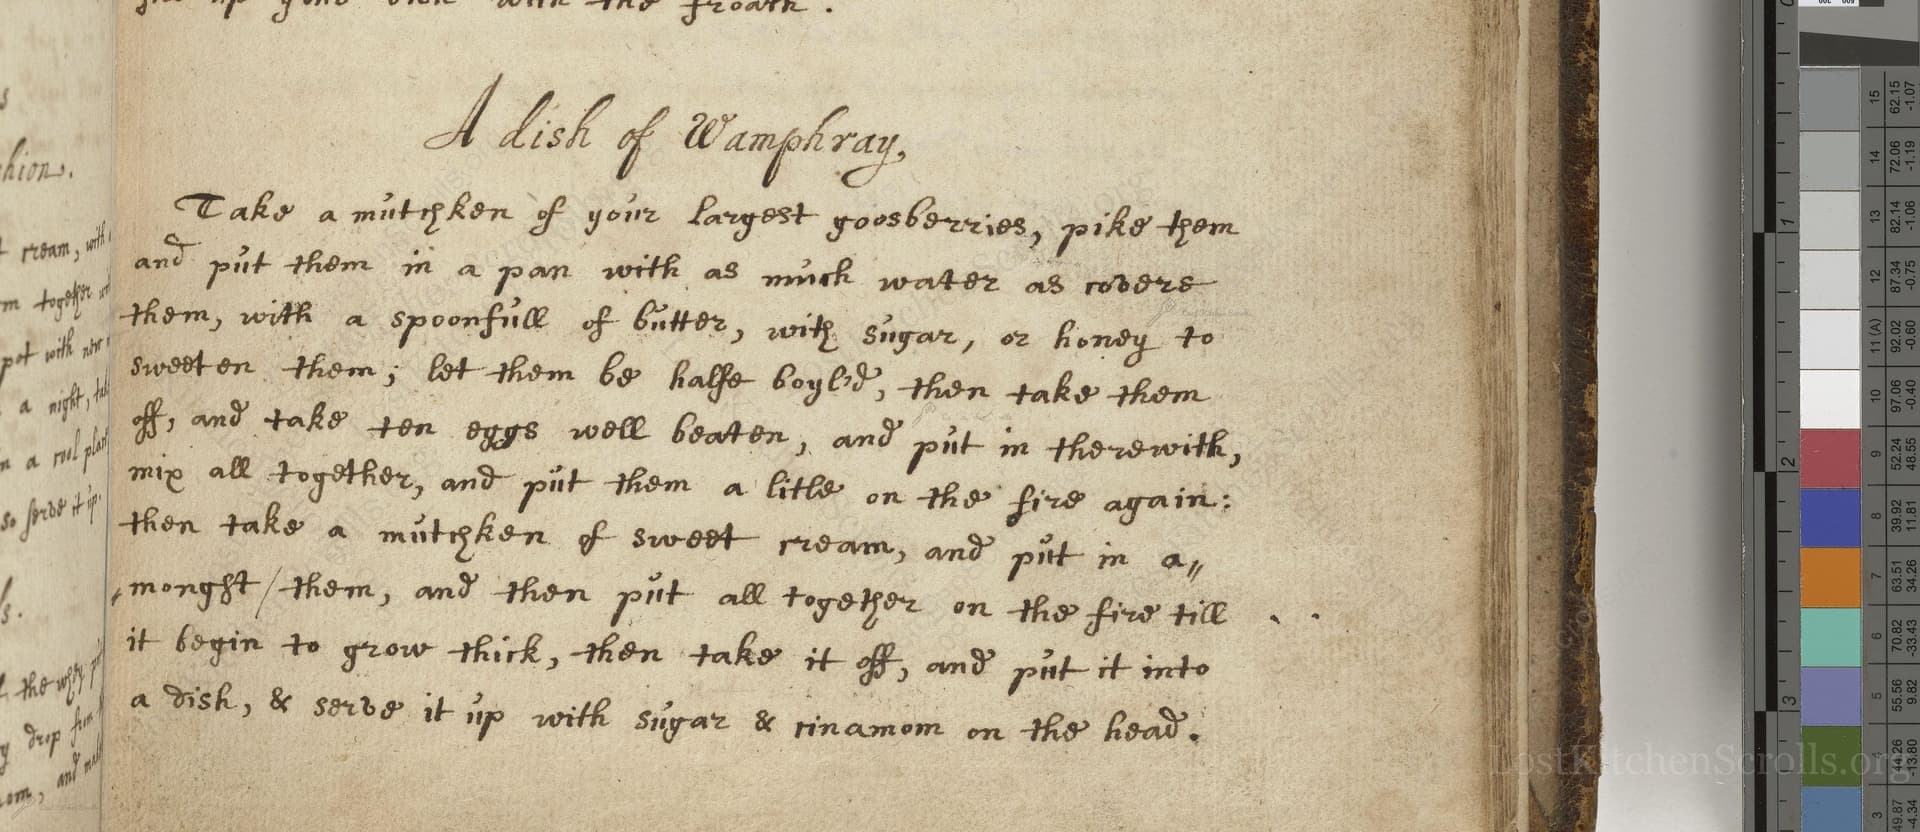 your dish with the froath.
A dish of Wamphray,
Take a mutchken of your largest goosberries, pike them
and put them in a pan with as much water as covers
them, with a spoonfull of butter, with sugar, or honey to
sweeten them; let them be halfe boyl'd, then take them
off, and take ten eggs well beaten, and put in therewith,
mix all together, and put them a litle on the fire again:
then take a mutchken of sweet cream, and put in a„
monght/them, and then put all together on the fire till
it begin to grow thick, then take it off, and put it into
a dish, & serve it up with sugar & cinamom on the head.
cream, with
together
pot with new
a night,
in a cool
so serve it up.
the
drop from
and
LostKitchenScrolls.org
0
1
2
3
15 62.15 -1.07
14 72.06 -1.19
13 82.14 -1.06
12 87.34 -0.75
11 (A) 92.02 -0.60
10 97.06 -0.40
9 52.24 48.55
8 39.92 11.81
7 63.51 34.26
6 70.82 -33.43
5 55.56 9.82
44.26 -13.80
3 49.87 -4.34